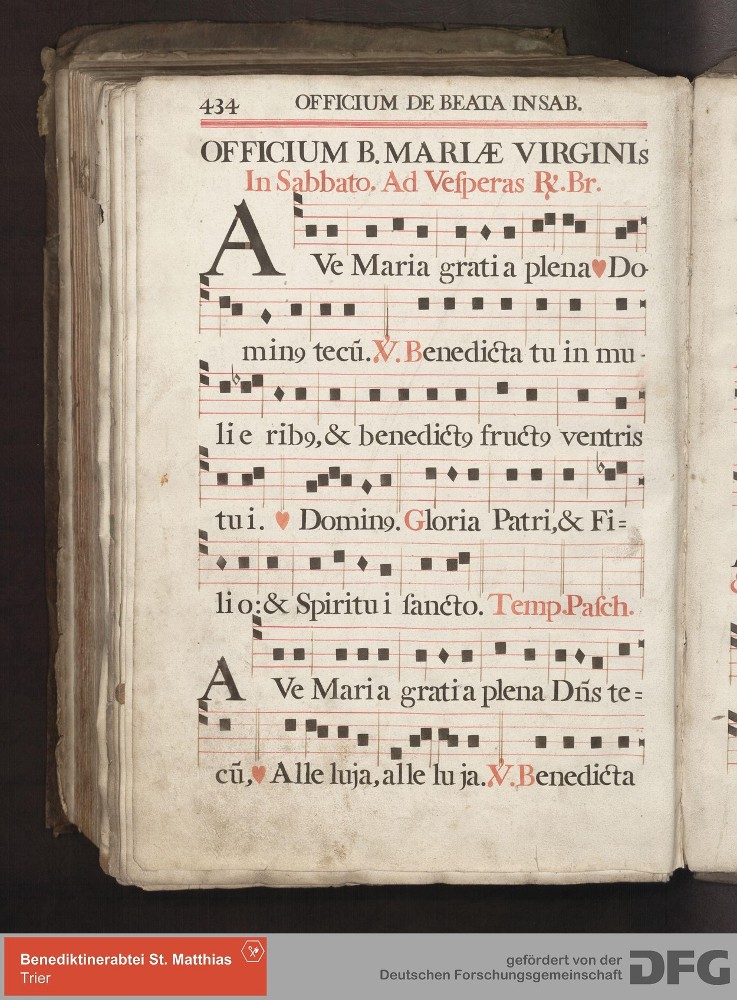 434 OFFICIUM DE BEATA IN SAB.
OFFICIUM B. MARIÆ VIRGINIs
In Sabbato. Ad Veſperas ℟. Br.
AVe Maria gratia plena♥Do-
minꝯ tecũ. ℣. Benedicta tu in mu-
lieribꝯ, & benedictꝯ fructꝯ ventris
tui. ♥ Dominꝯ. Gloria Patri, & Fi=
lio: & Spiritui ſancto. Temp. Paſch.
AVe Maria gratia plena Dñs te=
cũ, ♥ Alleluja, alleluja. ℣. Benedicta
Benediktinerabtei St. Matthias
Trier
gefördert von der
Deutschen Forschungsgemeinschaft
DFG